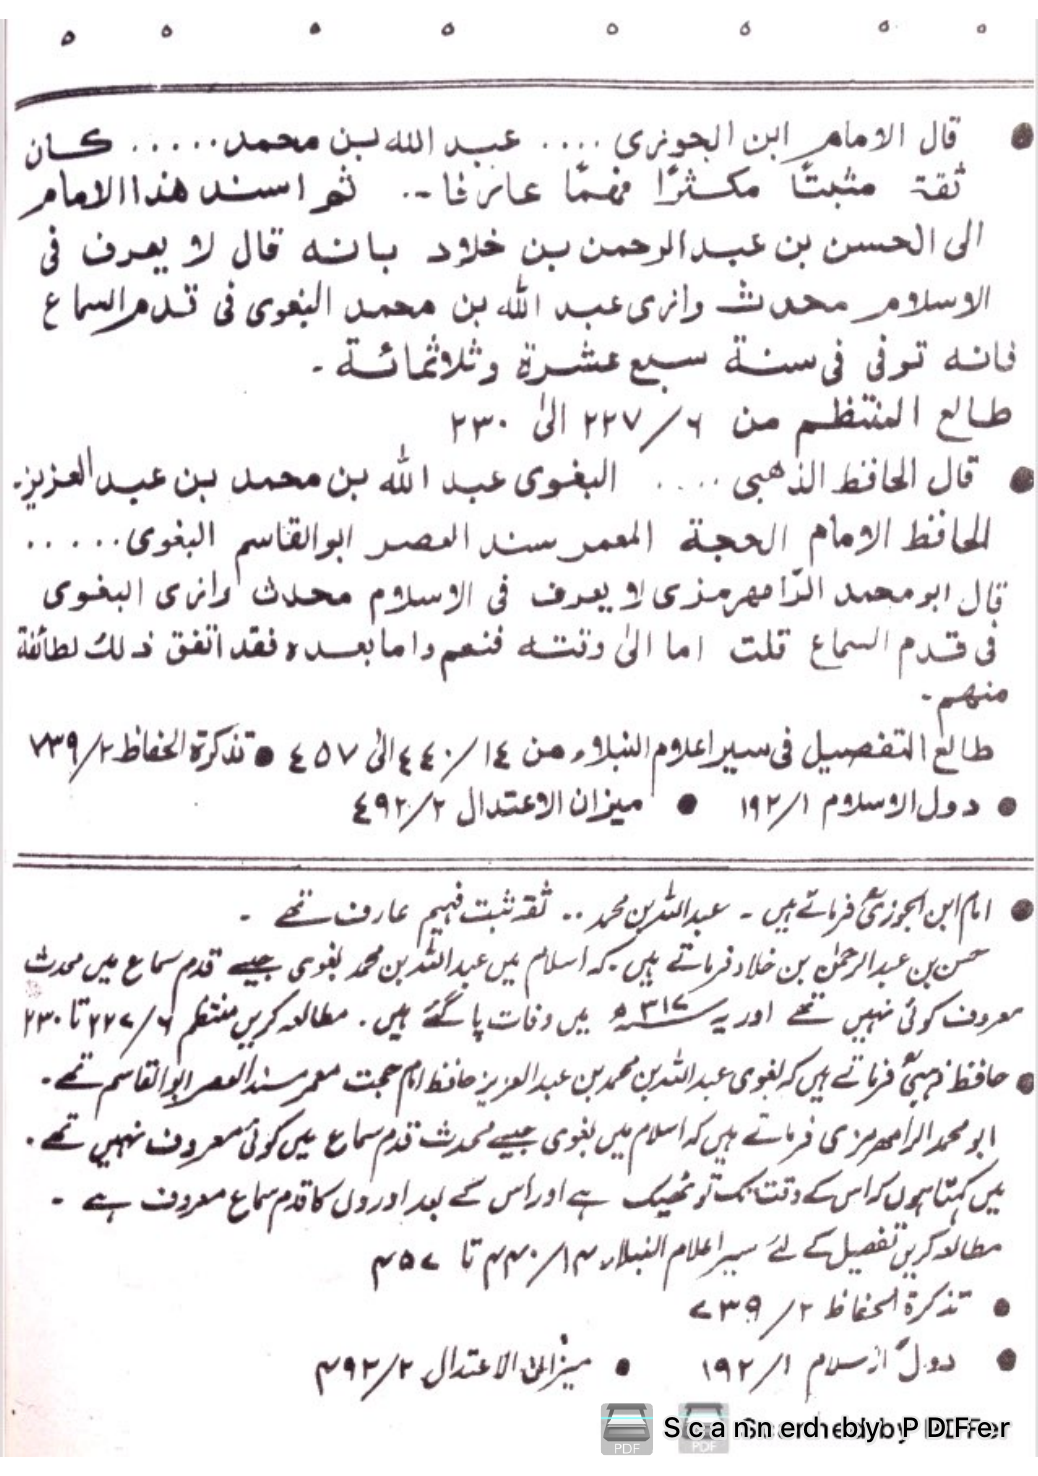 ● قال الامام ابن الجوزی .... عبد الله بن محمد ..... کان
ثقة مثبتًا مکثرًا فهمًا عارفا -.. ثم اسند هذا الامام
الی الحسن بن عبد الرحمن بن خلاد بانه قال لا یعرف فی
الاسلام محدث وازی عبد الله بن محمد البغوی فی قدم السماع
فانه توفی فی سنة سبع عشرة وثلاثمائة -
طالع المنتظم من ٦/٢٢٧ الیٰ ٢٣٠
● قال الحافظ الذهبی .... البغوی عبد الله بن محمد بن عبد العزیز-
الحافظ الامام الحجة المعمر سند العصر ابو القاسم البغوی .....
قال ابو محمد الرّامهرمذی لا یعرف فی الاسلام محدث وازی البغوی
فی قدم السماع قلت اما الیٰ وقته فنعم واما بعده فقد اتفق ذلك لطائفة
منهم -
طالع التفصیل فی سیر اعلام النبلاء من ١٤/٤٤٠ الیٰ ٤٥٧ ● تذکرة الحفاظ ٢/٧٣٩
● دول الاسلام ١/١٩٢ ● میزان الاعتدال ٢/٤٩٢
● امام ابن الجوزیؒ فرماتے ہیں - عبداللہ بن محمد .. ثقہ ثبت فہیم عارف تھے -
حسن بن عبدالرحمٰن بن خلاد فرماتے ہیں کہ اسلام میں عبداللہ بن محمد بغوی جیسے قدم سماع میں محدث
معروف کوئی نہیں تھے اور یہ ۳۱۷ھ میں وفات پا گئے ہیں . مطالعہ کریں منتظم ۶/۲۲۷ تا ۲۳۰
● حافظ ذہبیؒ فرماتے ہیں کہ بغوی عبداللہ بن محمد بن عبدالعزیز حافظ امام حجت معمر مسند العصر ابوالقاسم تھے -
ابو محمد الرامهرمزی فرماتے ہیں کہ اسلام میں بغوی جیسے محدث قدم سماع میں کوئی معروف نہیں تھے .
میں کہتا ہوں کہ اس کے وقت تک تو ٹھیک ہے اور اس کے بعد اوروں کا قدم سماع معروف ہے -
مطالعہ کریں تفصیل کے لئے سیر اعلام النبلاء ۱۴/۴۴۰ تا ۴۵۷
● تذکرة الحفاظ ۲/۷۳۹
● دول اسلام ۱/۱۹۲ ● میزان الاعتدال ۲/۴۹۲
Scanned by PDFer